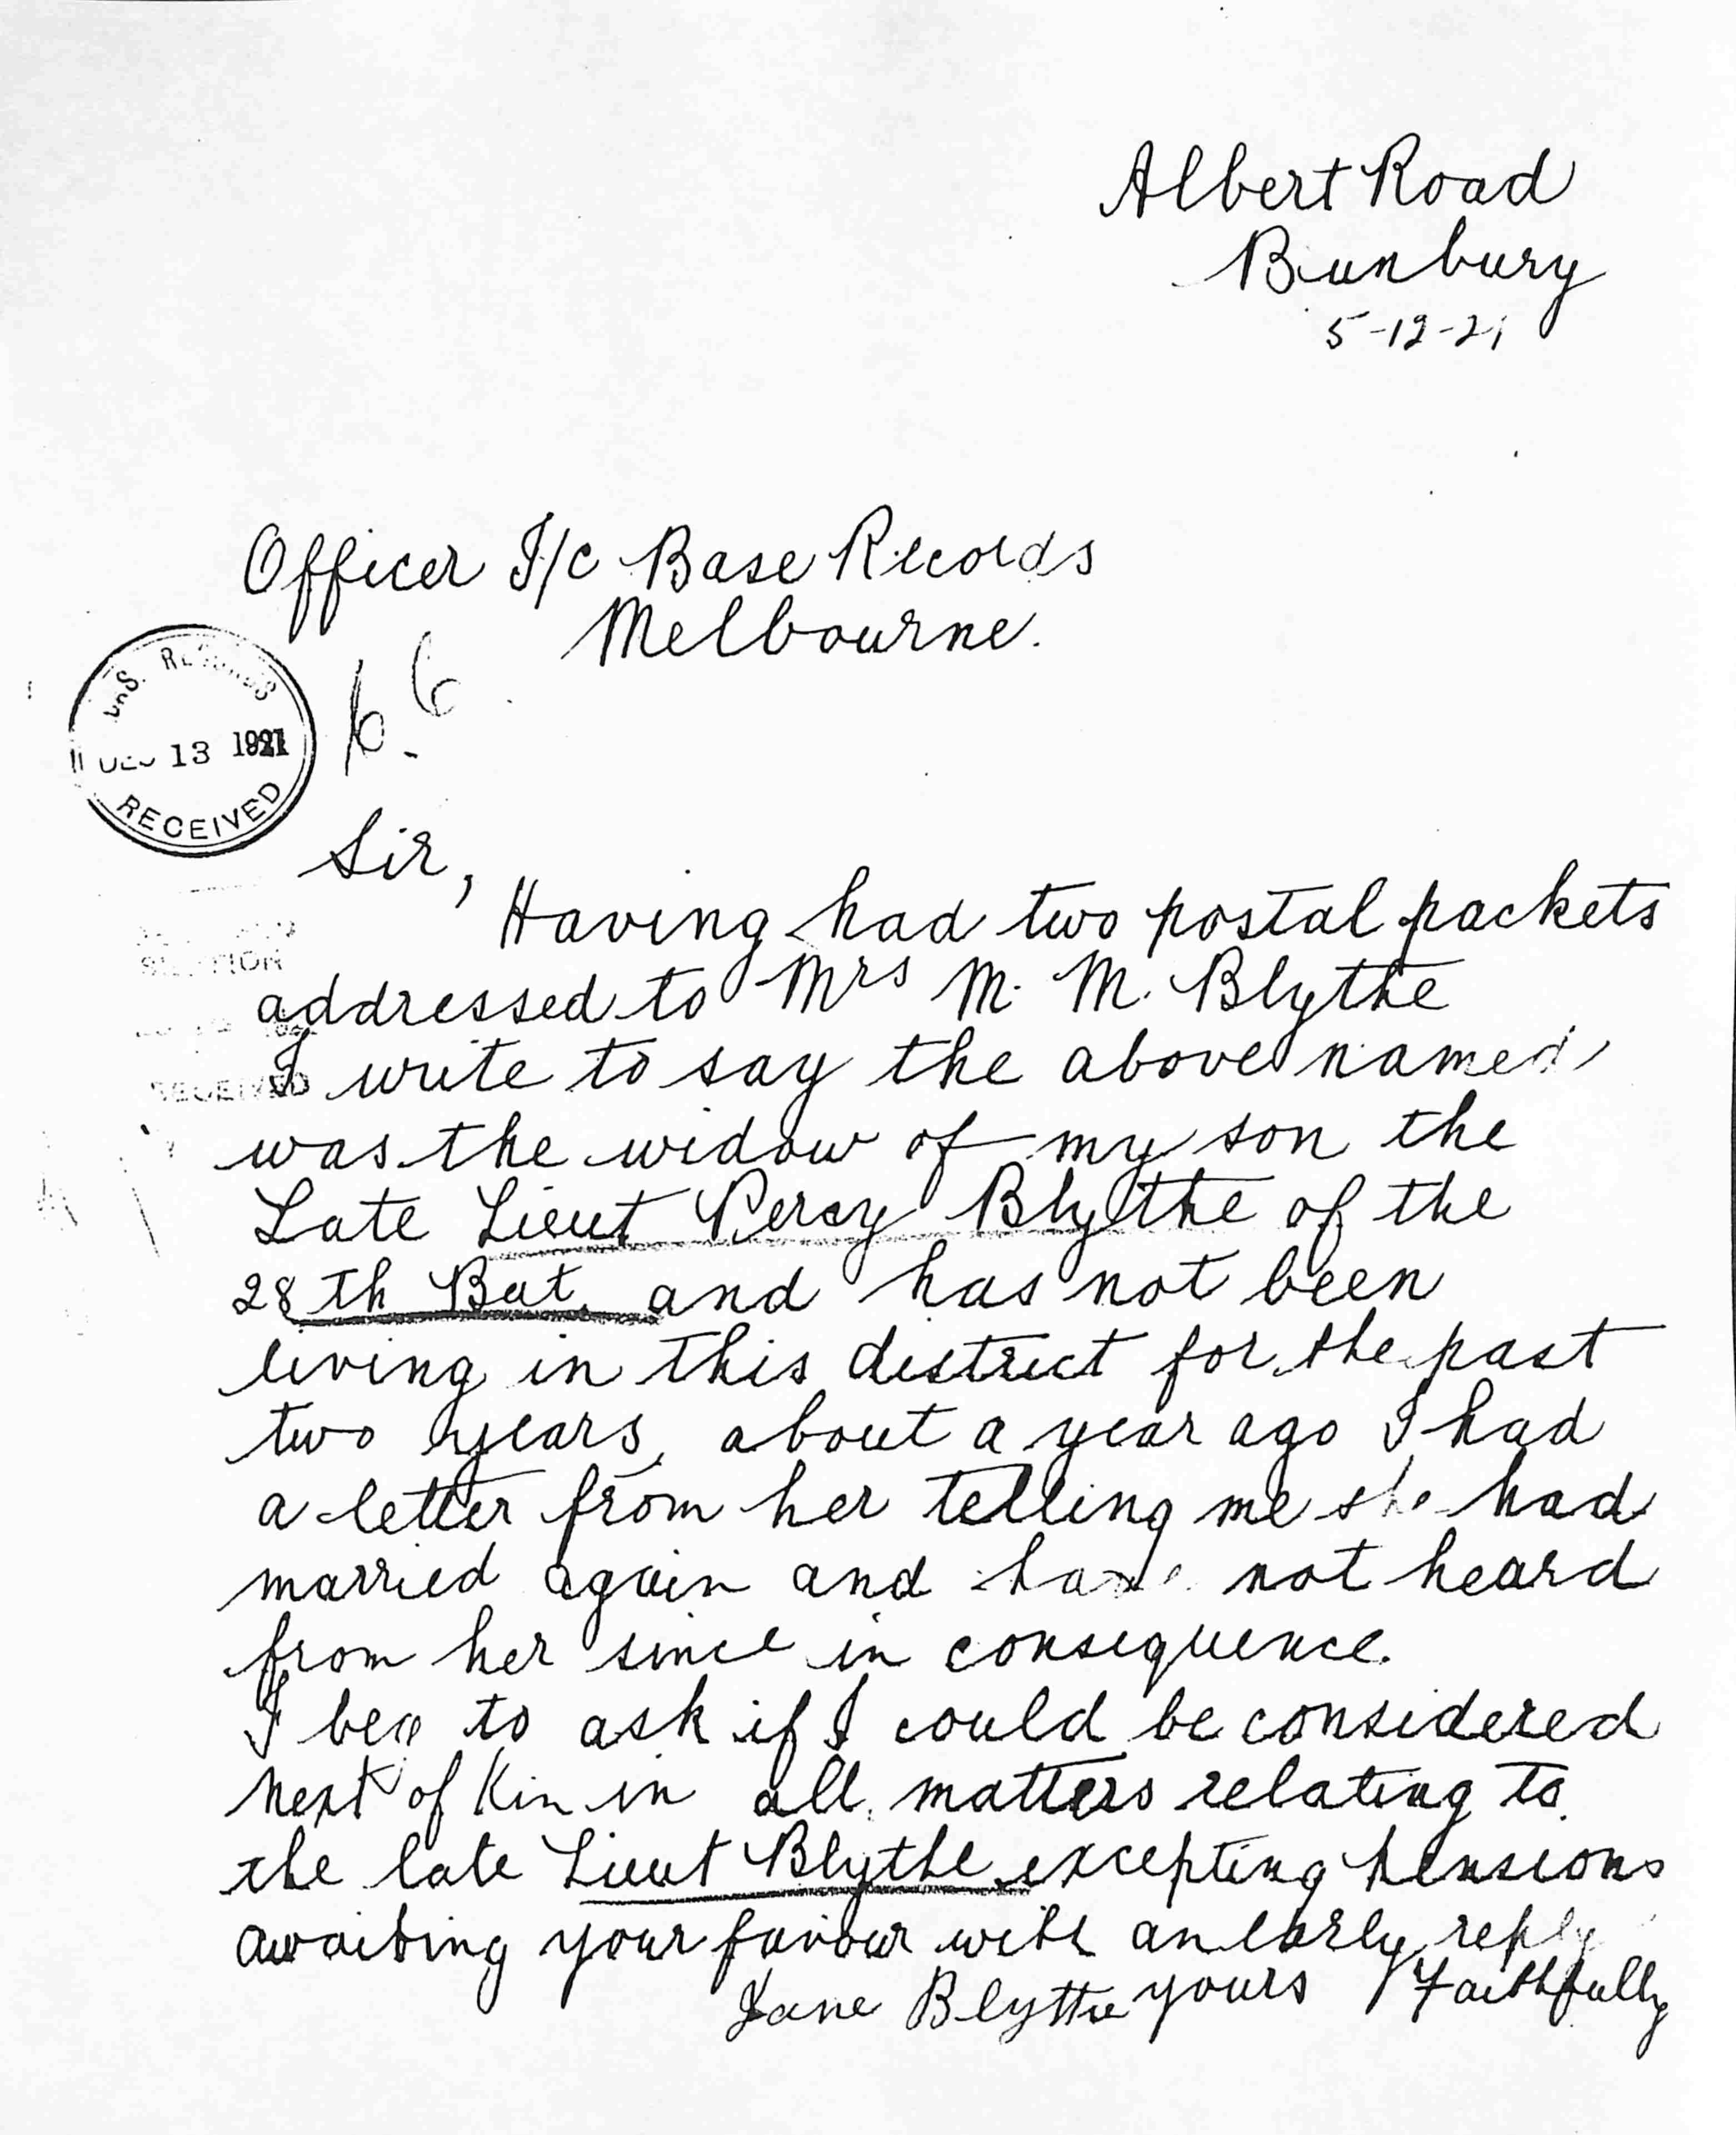 Albert Road
Bunbury
5-12-21
Officer I/c Base Records
Melbourne.
DEC 13 1921
RECEIVED
Sir,
Having had two postal packets
addressed to Mrs M. M. Blythe
I write to say the above named
was the widow of my son the
Late Lieut Percy Blythe of the
28th Bat. and has not been
living in this district for the past
two years, about a year ago I had
a letter from her telling me she had
married again and have not heard
from her since in consequence.
I beg to ask if I could be considered
Next of Kin in all matters relating to
the late Lieut Blythe excepting pensions
awaiting your favour with an early reply
Jane Blythe yours Faithfully
RECEIVED